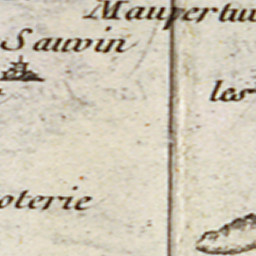 Maupertui
Sauvin
les
oterie